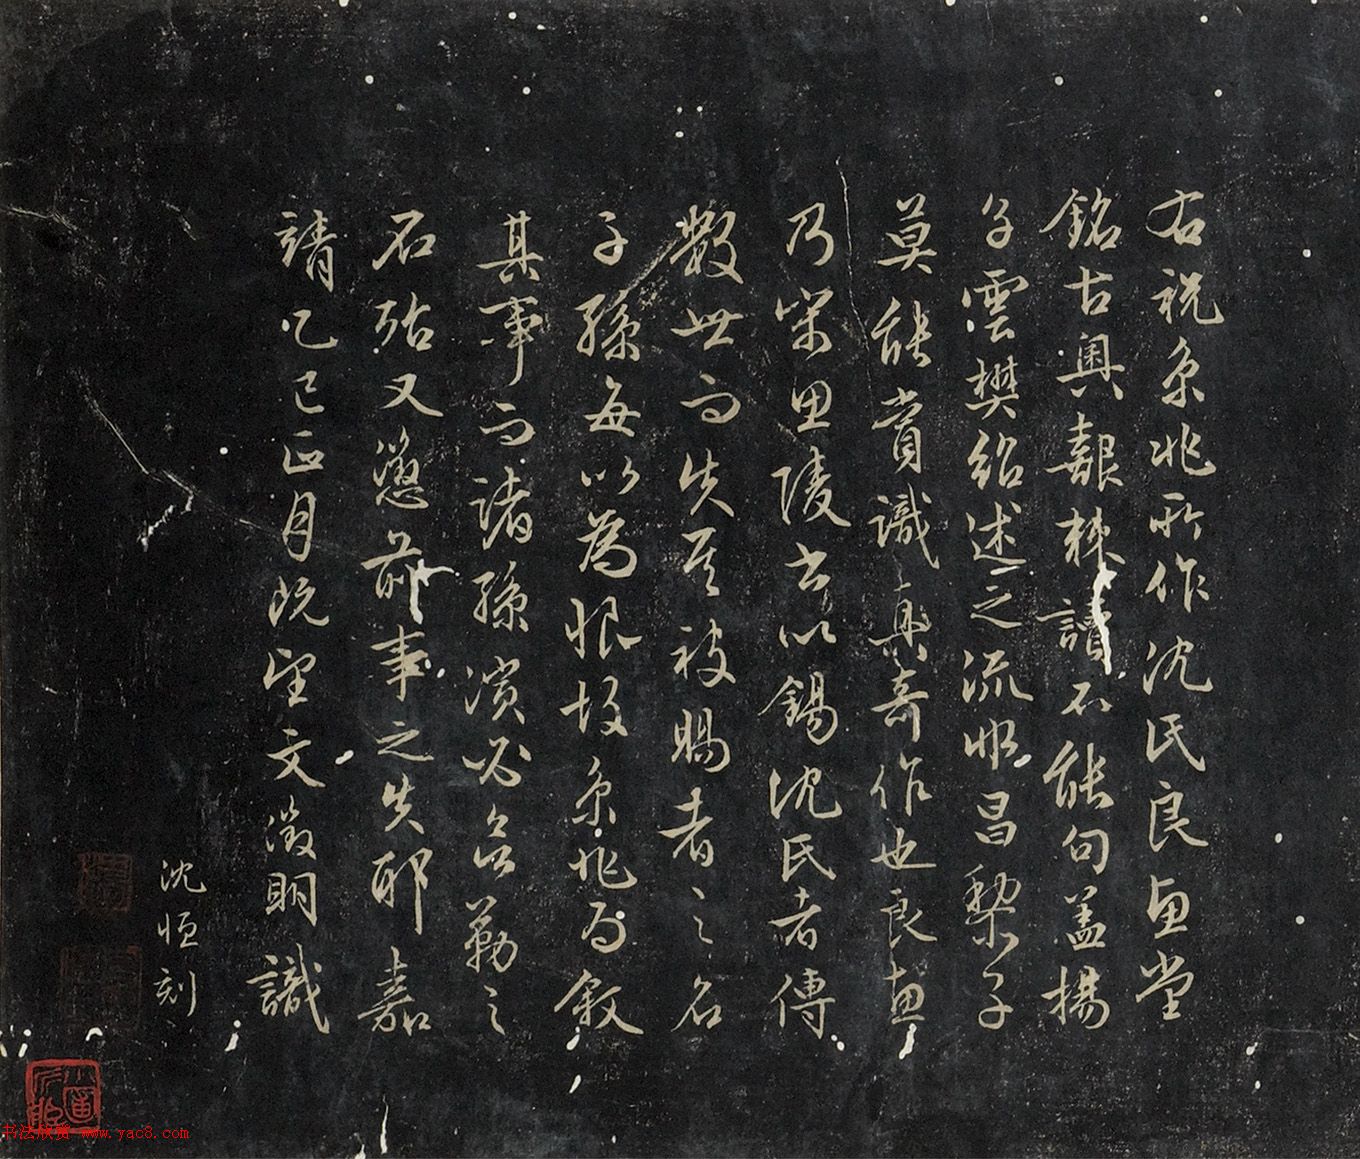 右祝京兆所作沈氏良惠堂
銘古奥艱棘讀不能句盖揚
子雲樊紹述之流惟昌黎子
莫能賞識真奇作也良惠
乃宋思陵書以錫沈氏者傳
數世而失其被賜者之名
子孫每以為恨故京兆為敘
其事而諸孫濱必欲勒之
石殆又懲前事之失耶嘉
靖乙巳正月既望文徵明識
沈恒刻
书法欣赏 www.yac8.com